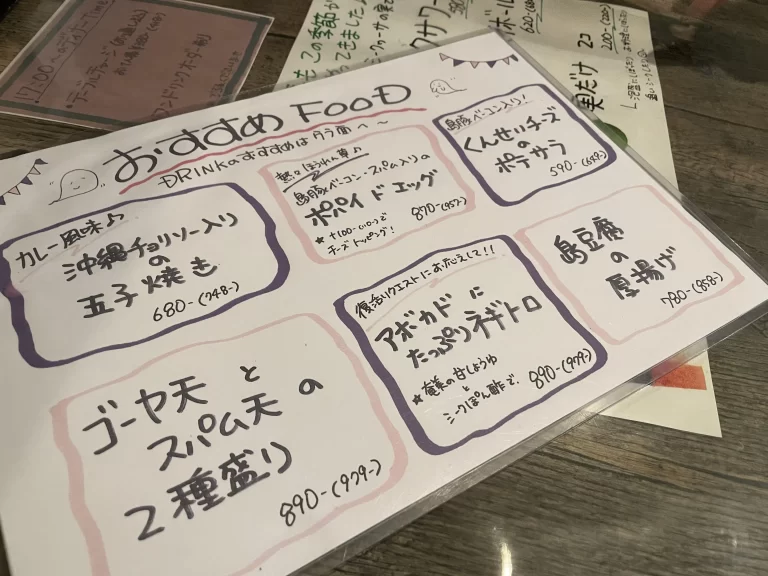 おすすめ FOOD
DRINKのおすすめは
カレー風味♪
沖縄チョリソー入り
の
玉子焼き
680-(748-)
悠々ほうれん草♪
島豚ベーコン・スパム入りの
ポパイドエッグ
870-(957-)
★+100-(110-)で
チーズトッピング!
島豚ベーコン入り!
くんせいチーズ
の
ポテサラ
590-(649-)
ゴーヤ天と
スパム天の
2種盛り
890-(979-)
復活リクエストにお応えして!!
アボカドに
たっぷりネギトロ
★奄美の甘しょうゆ
と
シークぽん酢で。
890-(979-)
島豆腐
の
厚揚げ
780-(858-)
17:00〜
この季節が
実だけ 2コ
200-(220-)